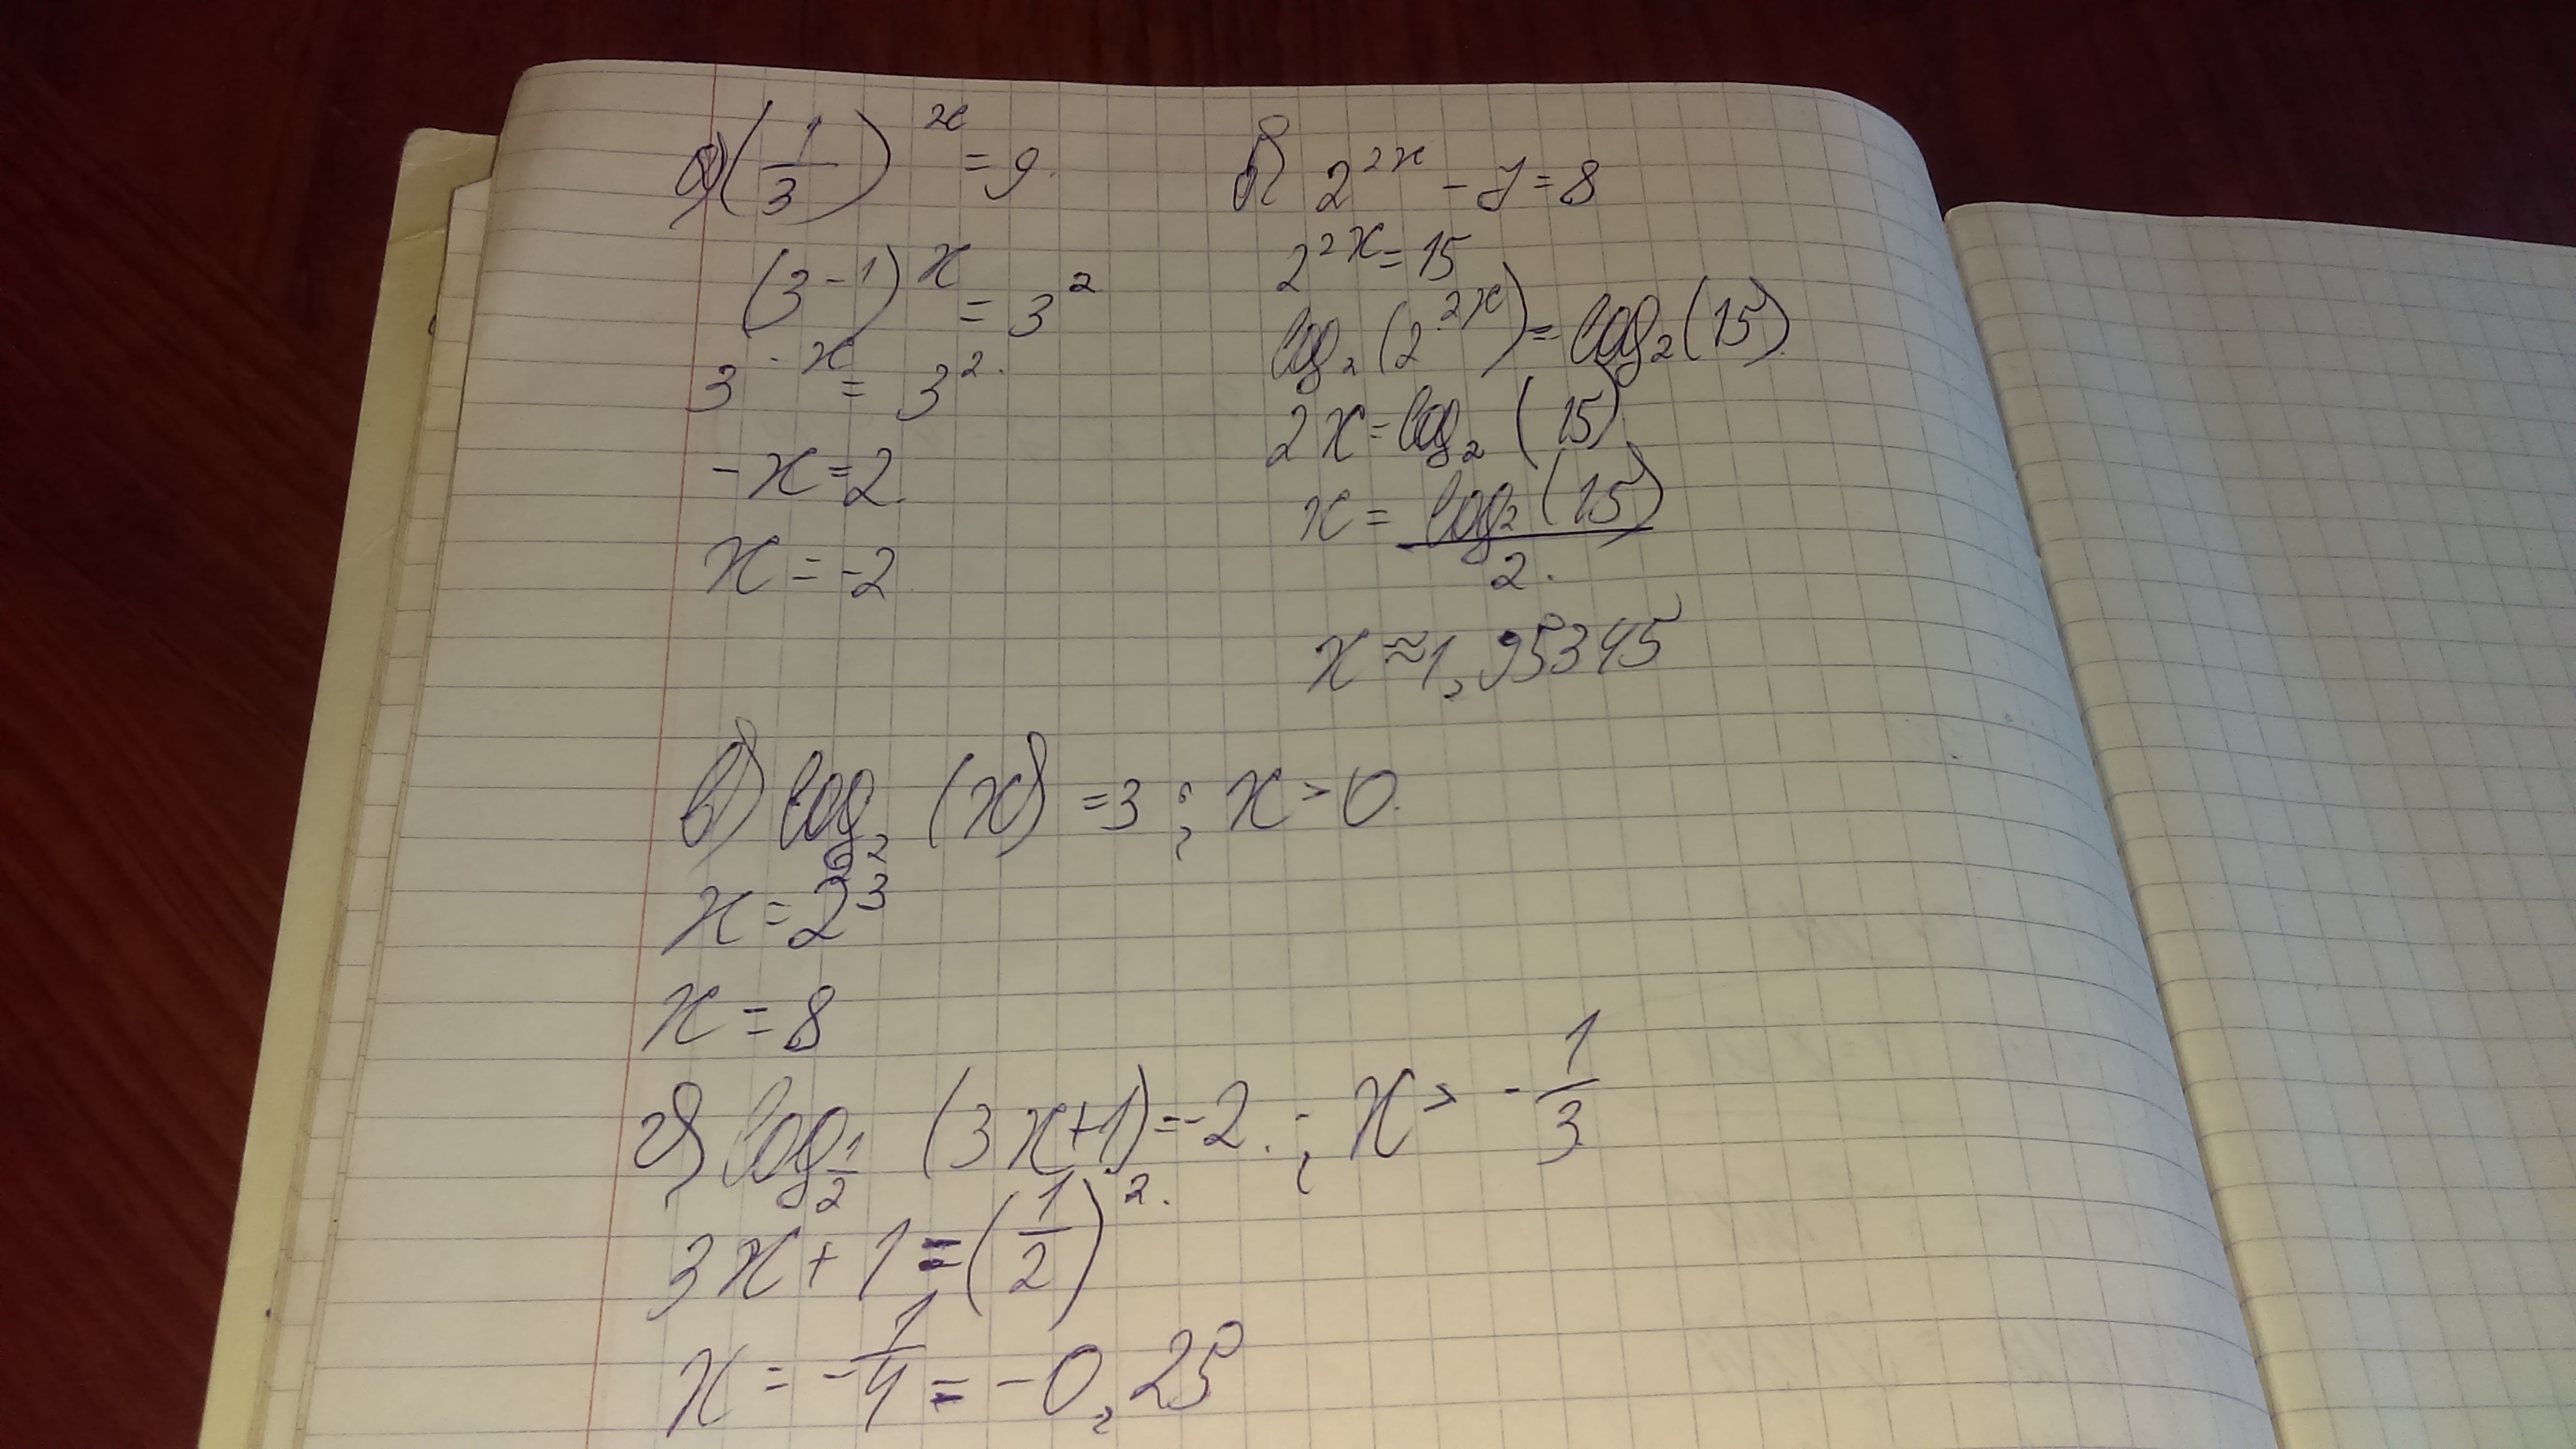 а) (1/3)^x = 9.
(3^-1)^x = 3^2
3^-x = 3^2.
-x = 2.
x = -2.
б) 2^2x - 7 = 8
2^2x = 15
log₂(2^2x) = log₂(15).
2x = log₂(15)
x = log₂(15)/2.
x ≈ 1,95345
в) log₂(x) = 3 ; x > 0.
x = 2^3
x = 8
г) log_1/2 (3x+1) = -2. ; x > -1/3
3x + 1 = (1/2)^2.
x = -1/4 = -0,25